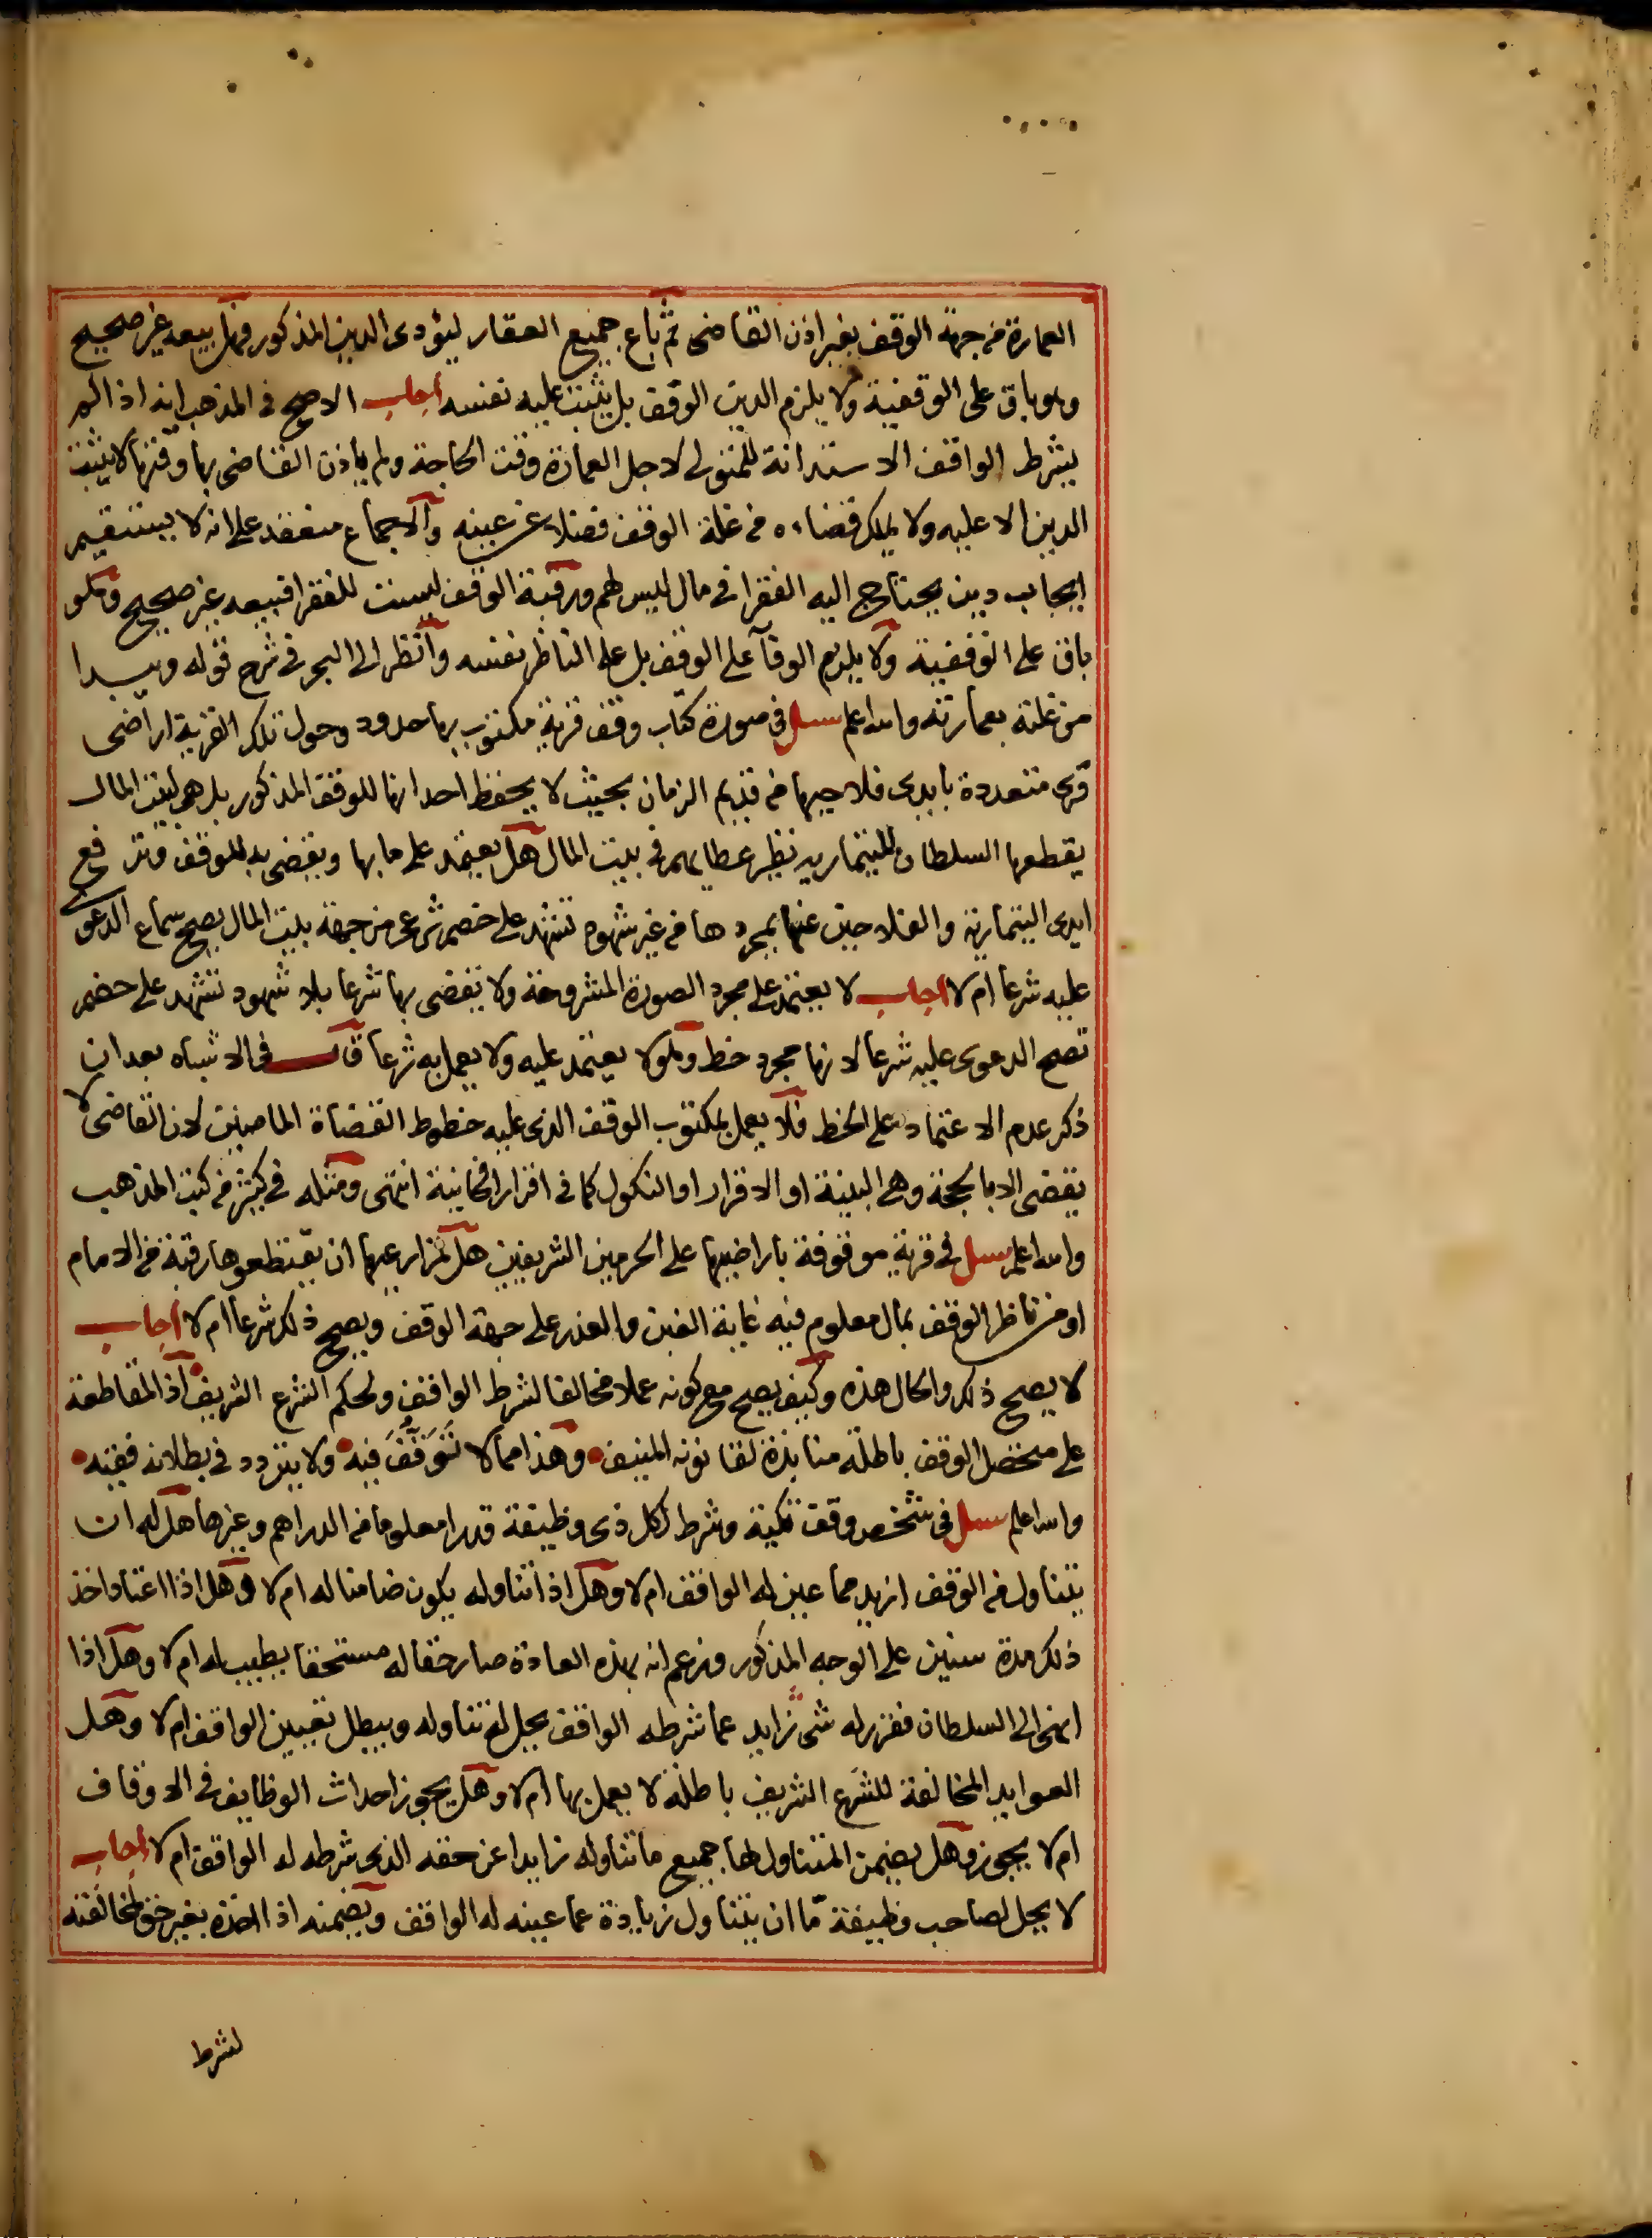 العمارة من جهة الوقف بغير اذن القاضى ثم باع جميع العقار ليؤدى الدين المذكور فهل بيعه غير صحيح
وهو باق على الوقفية ولا يلزم الدين الوقف بل يثبت عليه نفسه اجاب الاصح فى المذهب انه اذا لم
يشرط الواقف الاستدانة للمتولى لاجل العمارة وقت الحاجة ولم ياذن القاضى بها وقتها لا يثبت
الدين الا عليه ولا يملك قضاءه من غلة الوقف فضلا عن عينه والاجماع منعقد على انه لا يستقيم
ايجاب دين يحتاج اليه الفقرا فى مال ليس لهم ورقبة الوقف ليست للفقرا فبيعه غير صحيح وهو
باق على الوقفية ولا يلزم الوفآ على الوقف بل على الناظر نفسه وانظر الى البحر فى شرح قوله ويبدا
من غلته بعمارته والله اعلم سئل فى صورة كتاب وقف قرية مكتوب بها حدود وحول تلك القرية اراضى
قرى متعددة بايدى فلاحيها من قديم الزمان بحيث لا يحفظ احد انها للوقف المذكور بل هى لبيت المال
يقطعها السلطان للتيمارية نظير عطاياهم فى بيت المال هل يعتمد على ما بها ويقضى به للوقف وترفع
ايدى التيمارية والفلاحين عنها بمجردها من غير شهود تشهد على خصم شرعى من جهة بيت المال يصح سماع الدعوى
عليه شرعا ام لا اجاب لا يعتمد على مجرد الصورة المشروحة ولا يقضى بها شرعا بلا شهود تشهد على خصم
تصح الدعوى عليه شرعا لانها مجرد خط وهو لا يعتمد عليه ولا يعمل به شرعا قال فى الاشباه بعد ان
ذكر عدم الاعتماد على الخط فلا يعمل بمكتوب الوقف الذى عليه خطوط القضاة الماضين لان القاضى لا
يقضى الا بالحجة وهى البينة او الاقرار او النكول كما فى اقرار الخانية انتهى ومثله فى كثير من كتب المذهب
والله اعلم سئل فى قرية موقوفة باراضيها على الحرمين الشريفين هل لمزارعيها ان يقتطعوها رقبة من الامام
او من ناظر الوقف بمال معلوم فيه غاية الغبن والغدر على جهة الوقف ويصح ذلك شرعا ام لا اجاب
لا يصح ذلك والحال هذه وكيف يصح مع كونه عملا مخالفا لشرط الواقف ولحكم الشرع الشريف اذ المقاطعة
على متحصل الوقف باطلة منابذة لقانونه المنيف وهذا مما لا نتوقف فيه ولا يتردد فى بطلانه فقيه
والله اعلم سئل فى شخص وقف تكية وشرط لكل ذى وظيفة قدرا معلوما من الدراهم وغيرها هل له ان
يتناول من الوقف ازيد مما عين له الواقف ام لا وهل اذا تناوله يكون ضامنا له ام لا وهل اذا اعتاد اخذ
ذلك مدة سنين على الوجه المذكور وزعم انه بهذه العادة صار حقا له مستحقا يطيب له ام لا وهل اذا
انهى الى السلطان فقرر له شى زايد عما شرطه الواقف يحل له تناوله ويبطل تعيين الواقف ام لا وهل
العوايد المخالفة للشرع الشريف باطلة لا يعمل بها ام لا وهل يجوز احداث الوظايف فى الاوقاف
ام لا يجوز وهل يضمن المتناول لها جميع ما تناوله زايدا عن حقه الذى شرطه له الواقف ام لا اجاب
لا يحل لصاحب وظيفة مّا ان يتناول زيادة عما عينه له الواقف ويضمنه اذا اخذه بغير حق لمخالفته
لشرط